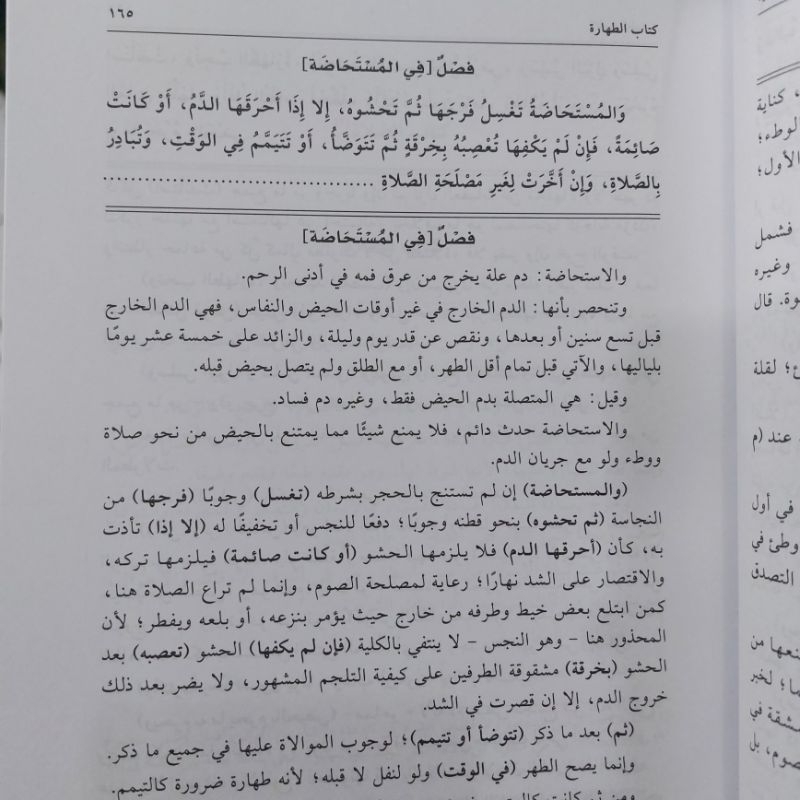 ١٦٥
كتاب الطهارة
فصْلٌ [فِي المُسْتَحَاضَة]
وَالمُسْتَحَاضَةُ تَغْسِلُ فَرْجَهَا ثُمَّ تَحْشُوهُ، إِلا إِذَا أَحْرَقَهَا الدَّمُ، أَوْ كَانَتْ
صَائِمَةً، فَإِنْ لَمْ يَكْفِهَا تُعْصِبُهُ بِخِرْقَةٍ ثُمَّ تَتَوَضَّأُ، أَوْ تَتَيَمَّمُ فِي الوَقْتِ، وَتُبَادِرُ
بِالصَّلاةِ، وَإِنْ أَخَّرَتْ لِغَيرِ مَصْلَحَةِ الصَّلاةِ ......................................
فصْلٌ [فِي المُسْتَحَاضَة]
والاستحاضة: دم علة يخرج من عرق فمه في أدنى الرحم.
وتنحصر بأنها: الدم الخارج في غير أوقات الحيض والنفاس، فهي الدم الخارج
قبل تسع سنين أو بعدها، ونقص عن قدر يوم وليلة، والزائد على خمسة عشر يومًا
بلياليها، والآتي قبل تمام أقل الطهر، أو مع الطلق ولم يتصل بحيض قبله.
وقيل: هي المتصلة بدم الحيض فقط، وغيره دم فساد.
والاستحاضة حدث دائم، فلا يمنع شيئًا مما يمتنع بالحيض من نحو صلاة
ووطء ولو مع جريان الدم.
(والمستحاضة) إن لم تستنج بالحجر بشرطه (تغسل) وجوبًا (فرجها) من
النجاسة (ثم تحشوه) بنحو قطنه وجوبًا؛ دفعًا للنجس أو تخفيفًا له (إلا إذا) تأذت
به، كأن (أحرقها الدم) فلا يلزمها الحشو (أو كانت صائمة) فيلزمها تركه،
والاقتصار على الشد نهارًا؛ رعاية لمصلحة الصوم، وإنما لم تراع الصلاة هنا،
كمن ابتلع بعض خيط وطرفه من خارج حيث يؤمر بنزعه، أو بلعه ويفطر؛ لأن
المحذور هنا - وهو النجس - لا ينتفي بالكلية (فإن لم يكفها) الحشو (تعصبه) بعد
الحشو (بخرقة) مشقوقة الطرفين على كيفية التلجم المشهور، ولا يضر بعد ذلك
خروج الدم، إلا إن قصرت في الشد.
(ثم) بعد ما ذكر (تتوضأ أو تتيمم)؛ لوجوب الموالاة عليها في جميع ما ذكر.
وإنما يصح الطهر (في الوقت) ولو لنفل لا قبله؛ لأنه طهارة ضرورة كالتيمم.
، كناية
الأول؛
فشمل
وغيره
قال
؛ لقلة
عند (م
في أول
وطئ في
التصدق
من
لخبر
في
بل